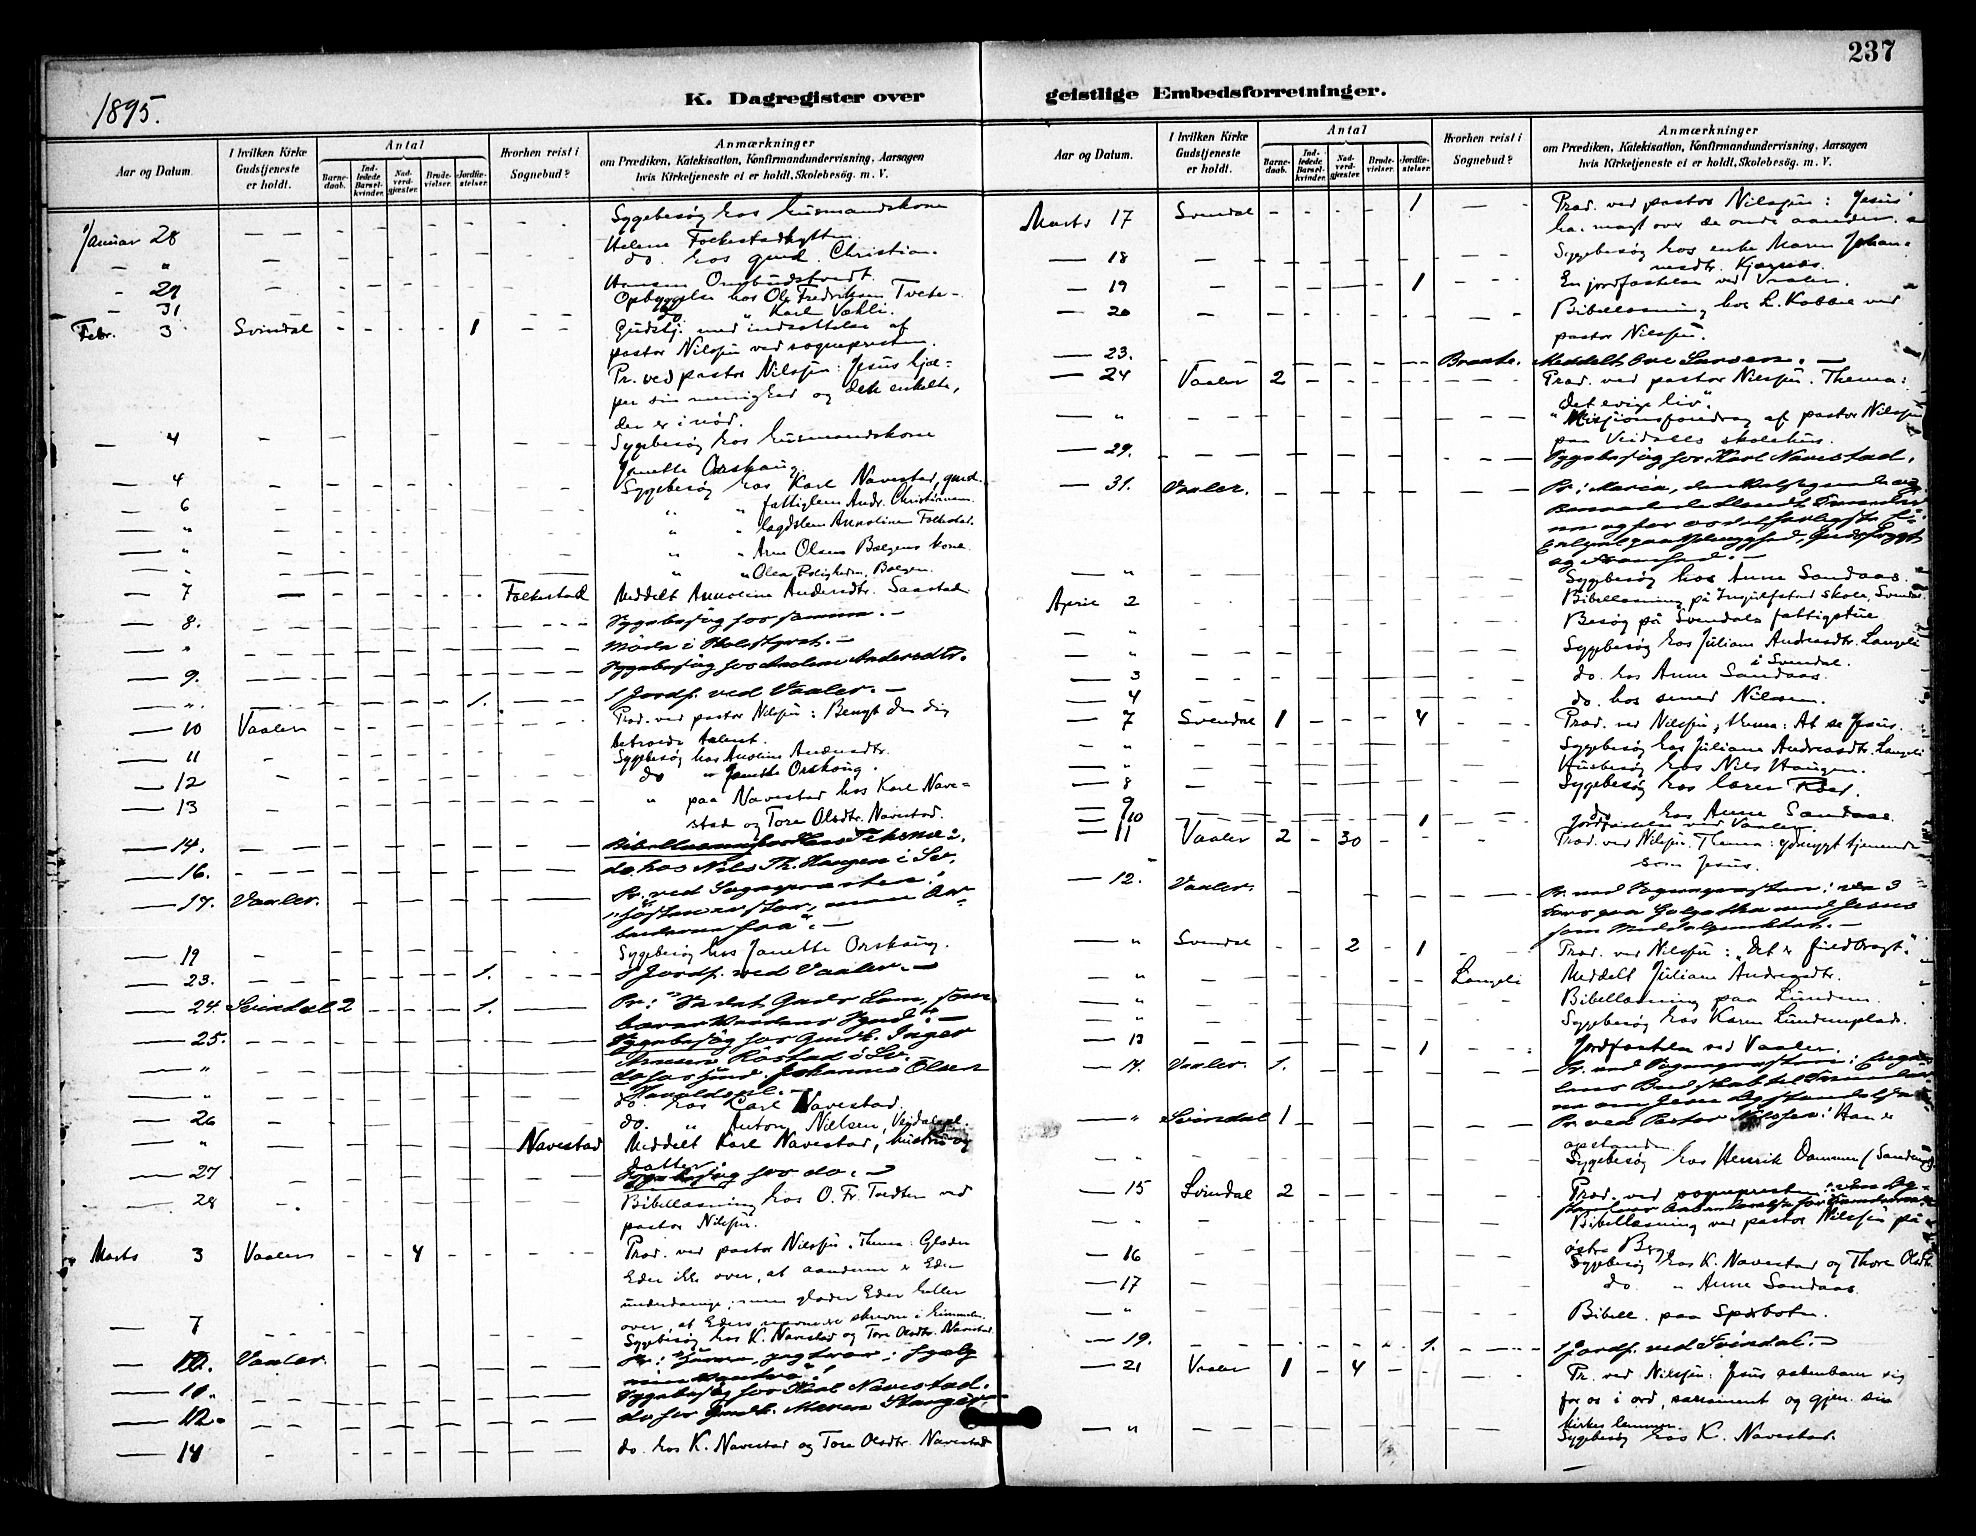 237
1895.
K. Dagregister over geistlige Embedsforretninger.
Aar og Datum. I hvilken Kirke Gudstjeneste er holdt. Antal Barnedaab. Indledede Barselkvinder. Nadverdgjæster. Brudevielser. Jordfæstelser. Hvorhen reist i Sognebud? Anmærkninger om Prædiken, Katekisation, Konfirmandundervisning, Aarsagen hvis Kirketjeneste ei er holdt, Skolebesøg. m. V.
Januar 28 Sygebesøg hos husmandskone
Helene Folkestadhytten
— " do. hos gmd. Christian
Hansen Ombudstvedt.
- 29 Opbyggelse hos Ole Fredriksen Tvete-.
- 31 do. " Karl Vakli.
Febr. 3 Svindal 1 Gudstj. med indsættelse af
pastor Nilssen ved sognepresten.
Pr. ved pastor Nilssen: Jesus hjæl=
per sin menighed og dele enkelte,
der er i nød.
— 4 Sygebesøg hos husmandskone
Janette Orskaug
— 4 Sygebesøg hos Karl Navestad, gmd.
— 6 " " fattiglem Andr. Christiansen
— " " " lagdslem Annoline Folkestad.
— " " " Arne Olsens Bølgens kone
— " " " Olea Boligheden, Bølgen.
— 7 Folkestad Meddelt Annoline Andersdtr. Saastad
— 8. Sygebesøg hos samme. —
— " Møde i Skolstyret. —
— 9. Sygebesøg hos Anoline Andersdtr.
— ". 1. 1 Jordf. ved Vaaler. —
— 10 Vaaler Præd. ved pastor Nilssen: Benyt den dig
betroede talent.
— 11 Sygebesøg hos Anoline Andersdtr.
— 12 do " Janette Orskaug.
— 13 " paa Navestad hos Karl Nave=
stad og Tore Olsdtr. Navestad.
— 14. Bibellæsning hos Hans
— 16. do. hos Nils Th. Haugen i Sv.
— 17. Vaaler. Pr. ved Sognepræsten:
"Høsten er stor, men Ar-
beiderne faa". —
— 19 Sygebesøg hos Janette Orskaug.
— 23. 1. 1 Jordf. ved Vaaler. —
— 24. Svindal 2 1. Pr.: "Se det Guds Lam, som
bærer Verdens Synd". —
— 25. Sygebesøg hos Gmdk. Inger
Røstad i Sv.
— " do hos Hmd. Johannes Olsen
Haraldspl. —
— " do. hos Karl Navestad.
— 26 do. " Anton Nielsen, Vejdalspl.
— " Navestad Meddelt Karl Navestad, hustru og
datter.
— 27 Sygebesøg hos do. —
— 28 Bibellæsning hos O. Fr. Tvedten ved
pastor Nilssen.
Marts 3 Vaaler 4 Præd. ved pastor Nilssen. Thema: Glæder
Eder ikke over, at aanderne er Eder
underdanige, men glæder Eder heller
over, at Eders navne er skrevne i himmelen.
— 7 Sygebesøg hos K. Navestad og Tore Olsdtr. Navestad
— 10. Vaaler. Pr.: "Herre, jeg tror; hjælp
min vantro".
— 10. Sygebesøg hos Karl Navestad.
— 12. do hos Gmdk. Maren Haugen
— 14 do. hos K. Navestad og Tore Olsdtr. Navestad
Aar og Datum. I hvilken Kirke Gudstjeneste er holdt. Antal Barnedaab. Indledede Barselkvinder. Nadverdgjæster. Brudevielser. Jordfæstelser. Hvorhen reist i Sognebud? Anmærkninger om Prædiken, Katekisation, Konfirmandundervisning, Aarsagen hvis Kirketjeneste ei er holdt, Skolebesøg. m. V.
Marts 17 Svindal 1 Præd. ved pastor Nilssen: Jesus
har magt over de onde aander.
— 18 Sygebesøg hos enke Maren Johan=
nesdtr. Kjærnæs.
— 19 1 En jordfæstelse ved Vaaler.
— 20 Bibellæsning hos L. Kobbe ved
pastor Nilssen.
— 23. Braate. Meddelt Larsen. —
— 24 Vaaler 2 Præd. ved pastor Nilssen. Thema:
"det evige liv".
— " Missionsforedrag af pastor Nilssen
paa Veidalls skolehus.
— 29. Sygebesøg hos Karl Navestad.
— 31. Vaaler. Pr.: Maria,
og
— " Sygebesøg hos Anne Sandaas.
April 2 Bibellæsning på Ingulfstad skole, Svindal
— " Besøg på Svendals fattigstue
— " Sygebesøg hos Juliane Andreasdtr. Langeli
i Svindal.
— 3 do. hos Anne Sandaas.
— 4 do. hos smed Nilssen.
— 7 Svendal 1 4 Præd. ved Nilssen, thema: At se Jesus.
— " Sygebesøg hos Juliane Andreasdtr. Langeli
— " Husbesøg hos Nils Haugen.
— 8 Sygebesøg hos lærer
— 9 do hos Anne Sandaas
— 10 1 Jordfæstelse ved Vaaler.
— 11 Vaaler 2 30 Præd. ved Nilssen. Thema: ydmygt tjenende
som Jesus.
— 12. Vaaler. Pr. ved Sognepræsten: De 3
Kors paa Golgatha med Jesus
som Midtpunktet. —
— " Svindal 2 1 Præd. ved Nilssen: "Det er fuldbragt".
— " Langeli Meddelt Juliane Andreasdtr.
— " Bibellæsning paa Lunden.
— " Sygebesøg hos Karen Lundenplads.
— 13 1 Jordfæstelse ved Vaaler.
— 14. Vaaler. 1. Pr. ved Sognepræsten: Enge-
lens Budskab til
om Jesu Opstandelse
— " Svindal 1 Pr. ved Pastor Nilssen: Han er
opstanden
— " Sygebesøg hos Henrik Dammen
— 15 Svindal 2 Præd. ved sognepresten:
— " Bibellæsning ved pastor Nilssen på
østre Berg.
— 16 Sygebesøg hos K. Navestad og Thore Olsdtr.
— 17 do " Anne Sandaas.
— " Bibell. paa Sperboten.
— 19. 1. 1 Jordf. ved Svindal. —
— 21 Vaaler 1 4 Pr. ved Nilssen: Jesus aabenbarer sig
for os i ord, sakrament og gjen. sin
kirkes lemmer.
— " Sygebesøg hos K. Navestad.